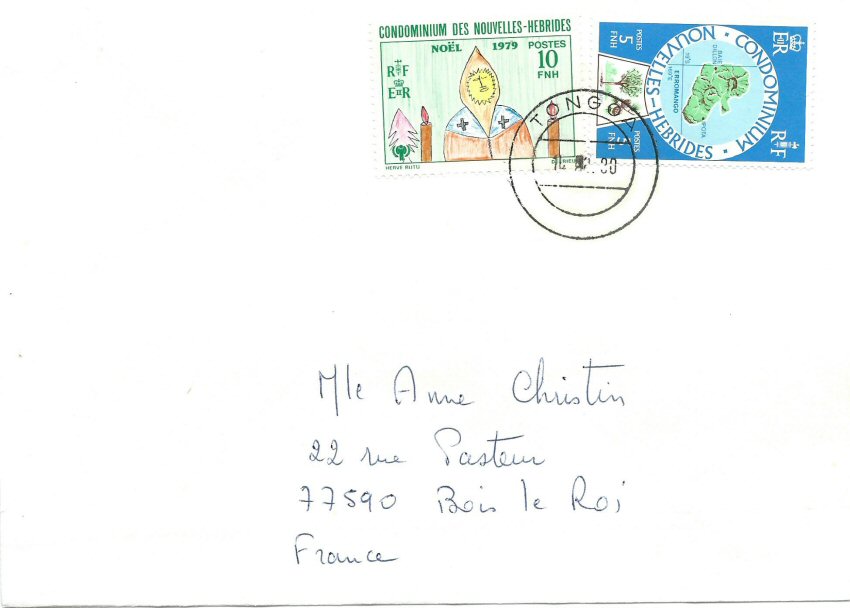 CONDOMINIUM DES NOUVELLES-HEBRIDES
NOËL 1979 POSTES
10
FNH
RF
EIIR
HERVE RUTU
POSTES
5
FNH
CONDOMINIUM
NOUVELLES-HEBRIDES
EIIR
RF
ERROMANGO
POSTES
5
FNH
TANGOA
80
Mle Anne Christin
22 rue Pasteur
77590 Bois le Roi
France